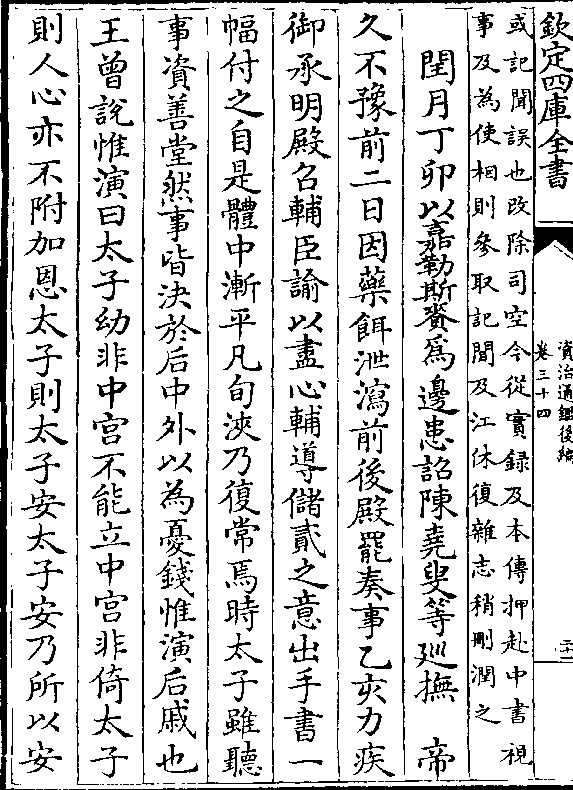 欽定四庫全書
資治通鑑後編
卷三十四
或記聞誤也改除司空今從實録及本傳押赴中書視
事及為使相則參取記聞及江休復雜志稍刪潤之
閏月丁卯以嘉勒斯賚為邊患詔陳堯叟等廵撫　帝
久不豫前二日因藥餌泄瀉前後殿罷奏事乙亥力疾
御承明殿召輔臣諭以盡心輔導儲貳之意出手書一
幅付之自是體中漸平凡旬浹乃復常焉時太子雖聽
事資善堂然事皆決於后中外以為憂錢惟演后戚也
王曾說惟演曰太子幼非中宫不能立中宫非倚太子
則人心亦不附加恩太子則太子安太子安乃所以安